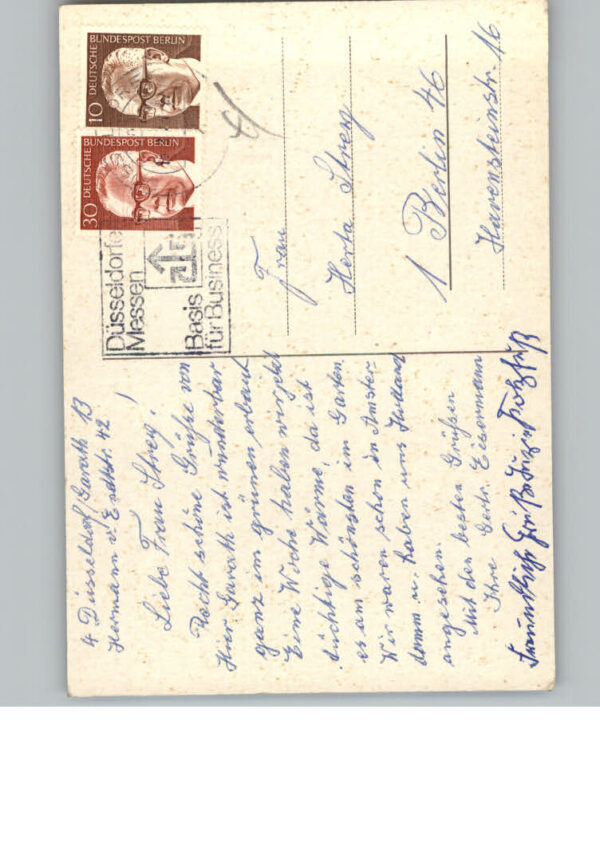 4 Düsseldorf/Garath 13
Hermann v. Endtstr. 42
Liebe Frau Streg!
Recht schöne Grüße von
Hier Garath ist wunderbar
ganz im grünen erbaut
Eine Woche haben wir jetzt
tüchtige Wärme, da ist
es am schönsten im Garten.
Wir waren schon in Amster-
damm u. haben uns Holland
angesehen.
Mit den besten Grüßen
Ihre Gertr. Eisermann
DEUTSCHE BUNDESPOST BERLIN
10
DEUTSCHE BUNDESPOST BERLIN
30
Düsseldorfer
Messen
Basis
für Business
Frau
Herta Streg
1 Berlin 46
Havensteinstr. 16